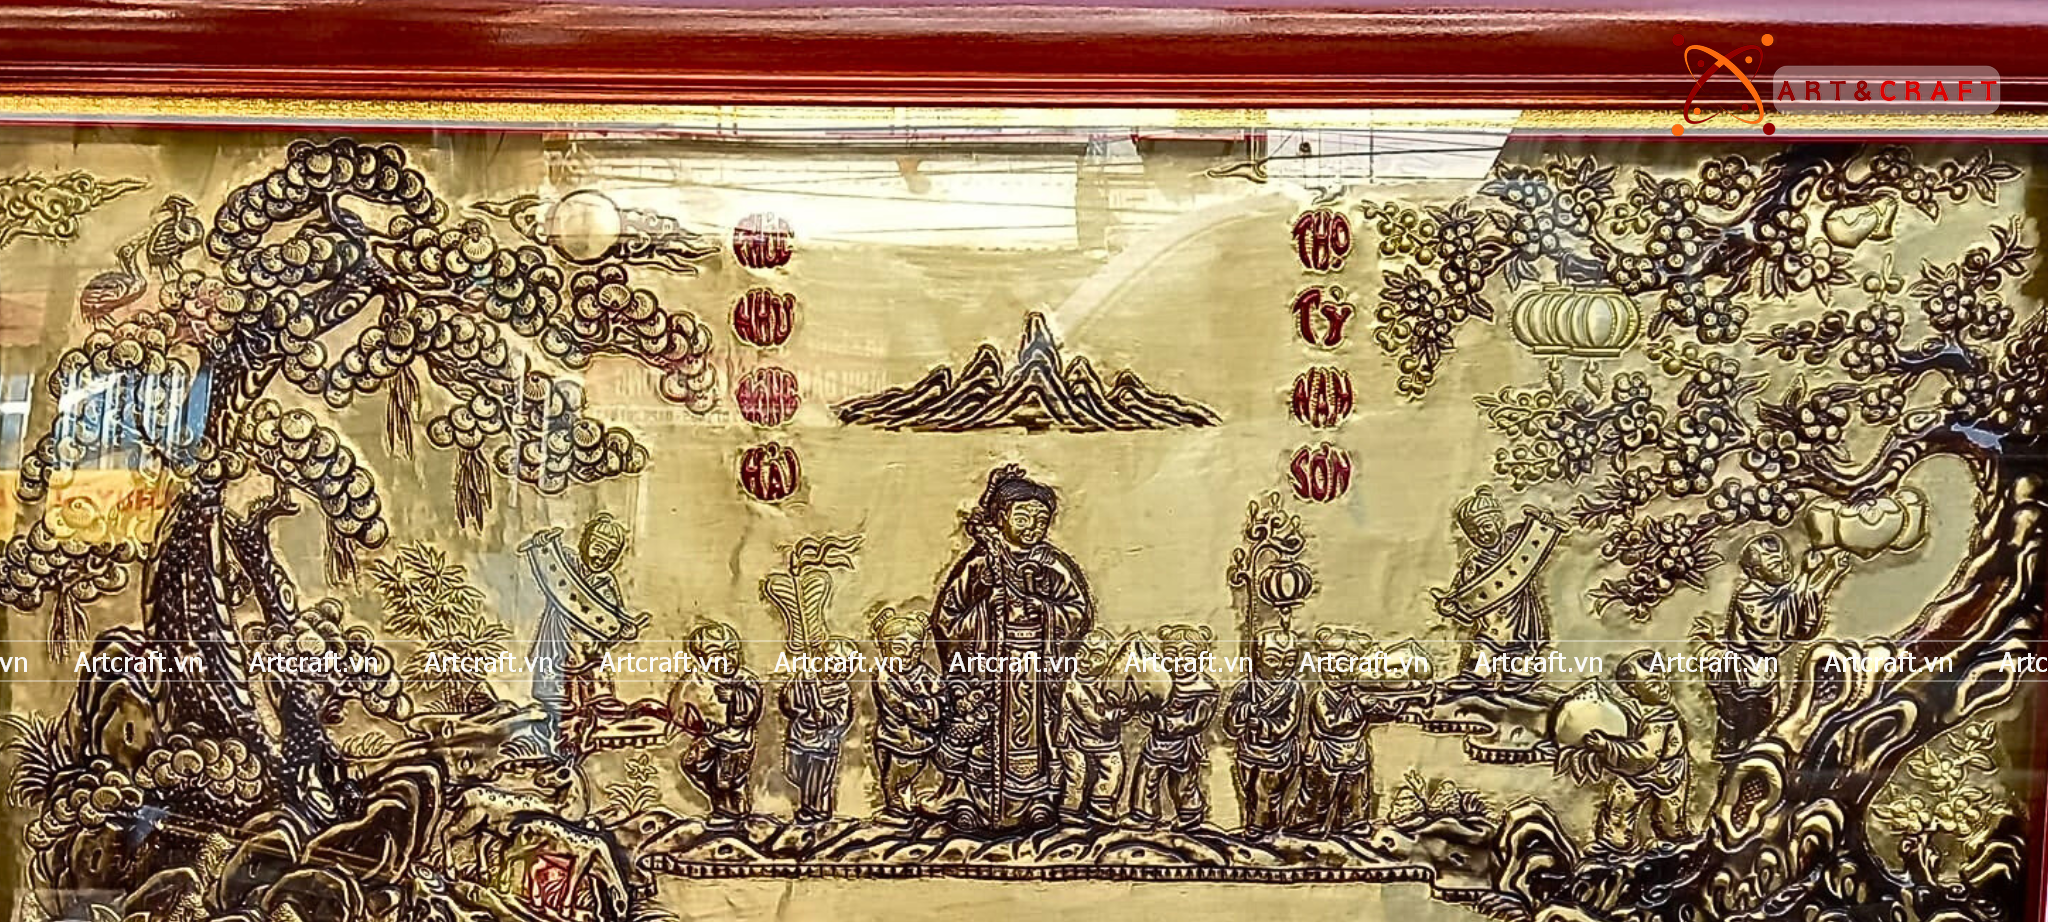 ART&CRAFT
PHÚC
NHƯ
ĐÔNG
HẢI
THỌ
TỶ
NAM
SƠN
vn Artcraft.vn Artcraft.vn Artcraft.vn Artcraft.vn Artcraft.vn Artcraft.vn Artcraft.vn Artcraft.vn Artcraft.vn Artcraft.vn Artcraft.vn Artc